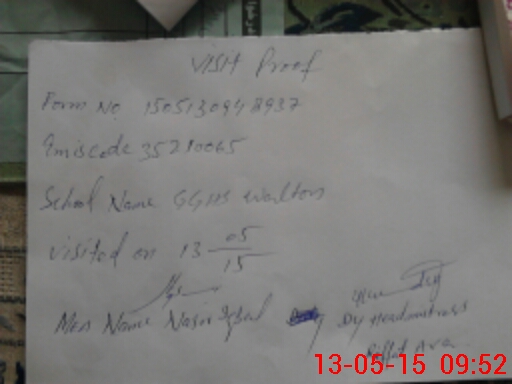 Visit Proof
Form No 150513094 8937
Emiscode 35210065
School Name GGHS Walton
Visited on 13 05
15
Men Name Nasir Iqbal
Dy Headmistress
13-05-15 09:52